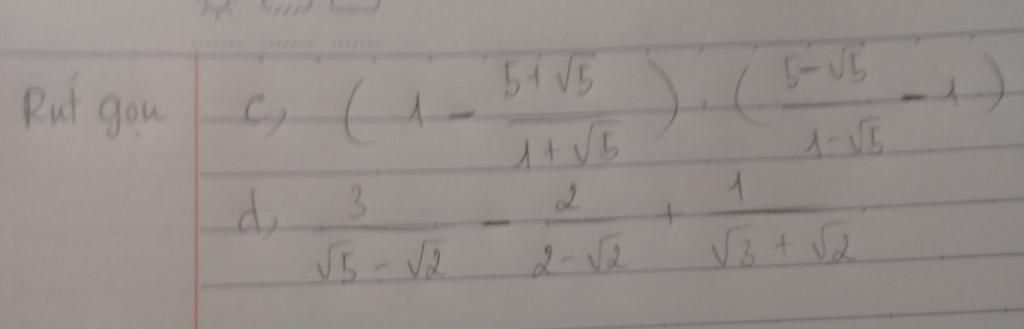 Rút gọn c, ( 1 - \frac{5+√5}{1+√5} ) . ( \frac{5-√5}{1-√5} - 1 )
d, \frac{3}{√5 - √2} - \frac{2}{2-√2} + \frac{1}{√3 + √2}